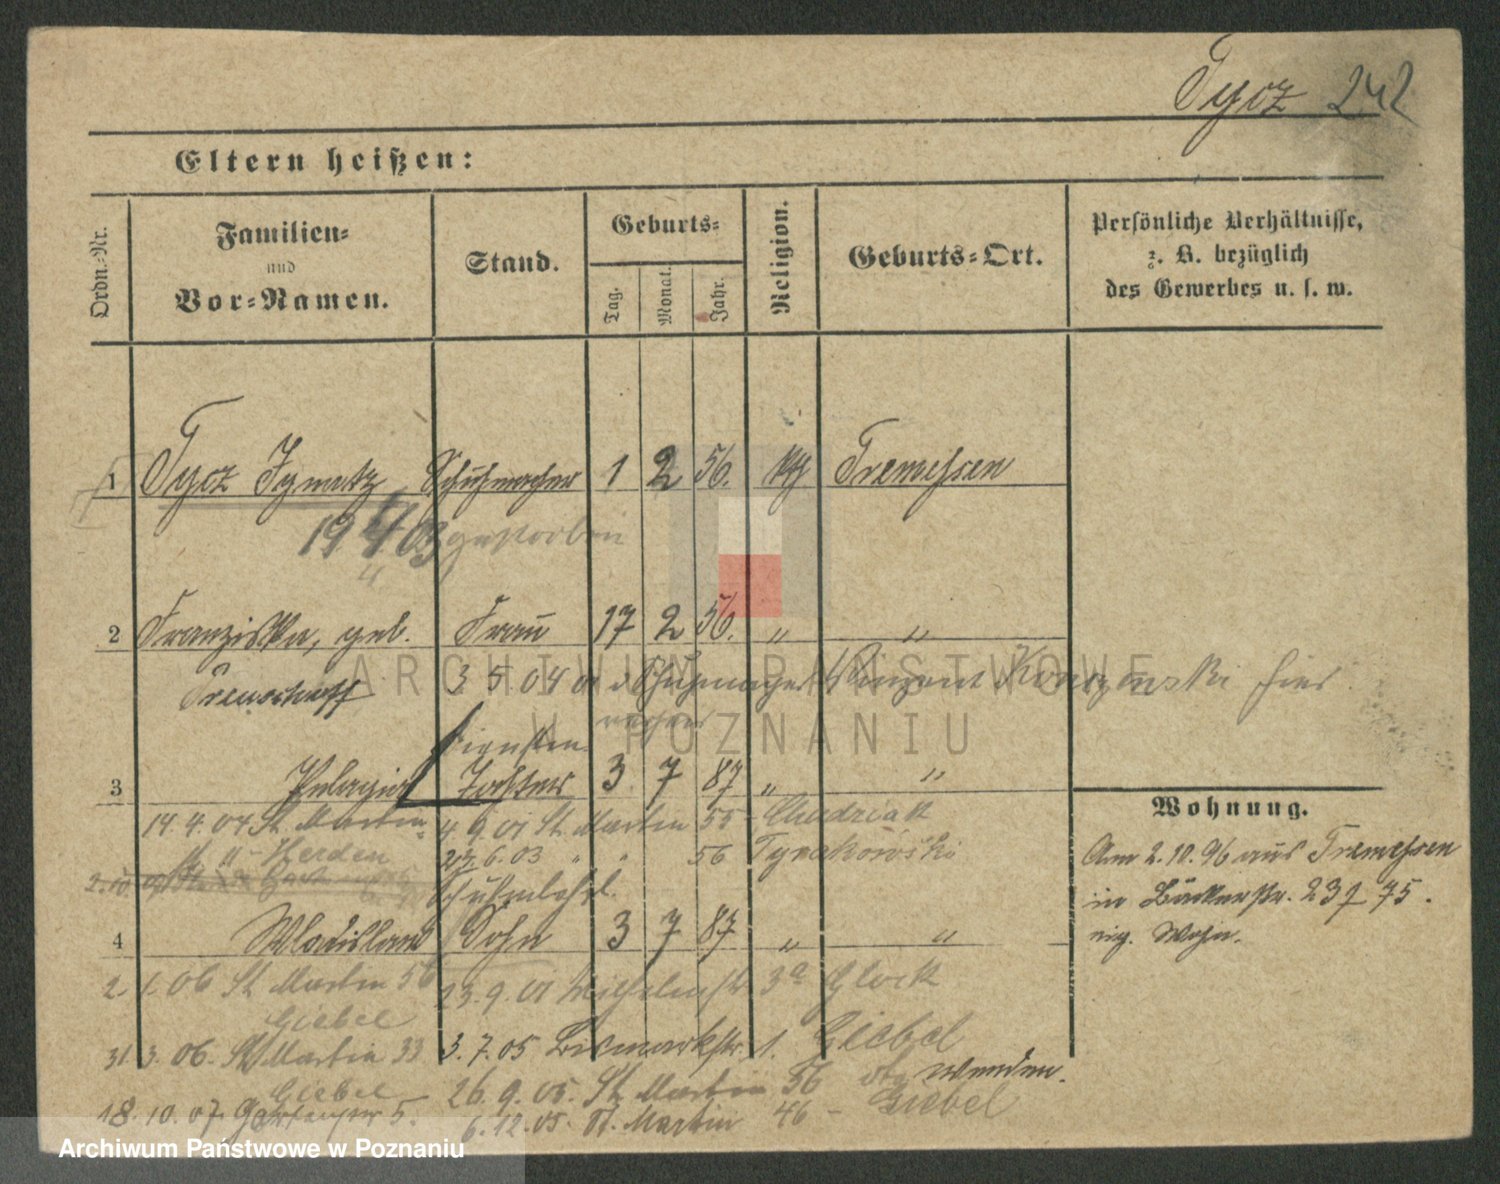 Tycz 242
Eltern heißen:
Ordn.-Nr.
Familien-
und
Vor-Namen.
Stand.
Geburts-
Tag.
Monat.
Jahr.
Religion.
Geburts-Ort.
Persönliche Verhältnisse,
z. B. bezüglich
des Gewerbes u. s. w.
1 Tycz Ignatz Schuhmacher 1 2 56. kth Tremessen
19 03 gestorben
2 Franziska, geb. Frau 17 2 56. " "
3 5 04 Schuhmacher Vinzent hier
ARCHIWUM PAŃSTWOWE
W POZNANIU
3 Pelagia Tochter 3 7 87 " "
14.4.04 St. Martin 4.9.01 St. Martin 55 - Chudziak
" - Herden 6.03 " " 56
Wohnung.
Am 2.10.96 aus Tremessen
in Bäckerstr. 23 75.
eig. Wohn.
Schuhmlehrl.
4 Wladislaus Sohn 3 7 87 " "
2. 1. 06 St Martin 56 23.9.01 Wilhelmstr 3a Glock
Giebel
31 3. 06. St Martin 33 3.7.05 Bismarkstr. 1. Giebel
Giebel 26.9.05. St. Martin 56 wenden.
18. 10. 07. 5. 6.12.05. St. Martin 46 - Giebel
Archiwum Państwowe w Poznaniu